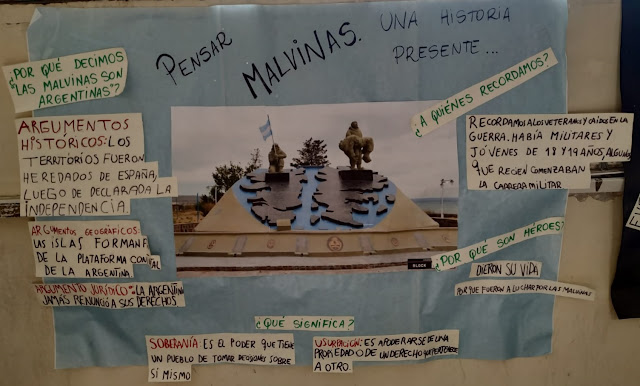 PENSAR MALVINAS. UNA HISTORIA
PRESENTE...
¿POR QUÉ DECIMOS
"LAS MALVINAS SON
ARGENTINAS"?
ARGUMENTOS
HISTÓRICOS: LOS
TERRITORIOS FUERON
HEREDADOS DE ESPAÑA,
LUEGO DE DECLARADA LA
INDEPENDENCIA
ARGUMENTOS GEOGRÁFICOS:
ISLAS FORMAN
DE LA PLATAFORMA
DE LA ARGENTINA
ARGUMENTO JURÍDICO: LA ARGENTINA
JAMÁS RENUNCIÓ A SUS DERECHOS
¿A QUIÉNES RECORDAMOS?
RECORDAMOS A LOS VETERANOS Y CAÍDOS EN LA
GUERRA. HABÍA MILITARES Y
JÓVENES DE 18 Y 19 AÑOS, ALGUNOS
QUE RECIEN COMENZABAN
LA CARRERA MILITAR
¿POR QUÉ SON HÉROES?
DIERON SU VIDA
PORQUE FUERON A LUCHAR POR LAS MALVINAS
BLOCK
¿QUÉ SIGNIFICA?
SOBERANÍA: ES EL PODER QUE TIENE
UN PUEBLO DE TOMAR DECISIONES SOBRE
SÍ MISMO
USURPACIÓN: ES APODERARSE DE UNA
PROPIEDAD O DE UN DERECHO QUE PERTENECE
A OTRO.